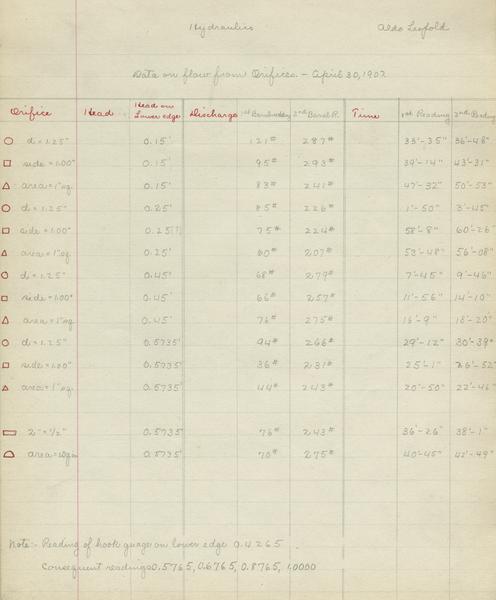 Hydraulics Aldo Leopold
Data on flow from Orifices - April 30, 1902
Orifice Head Head on Lower edge Discharge 1st Barrel 2nd Barrel R. Time 1st Reading 2nd Reading
d = 1.25" 0.15' 121# 287# 33'-35" 36'-48"
side = 1.00" 0.15' 95# 293# 39'-14" 43'-31"
area = 1"sq. 0.15' 83# 241# 47'-32" 50'-53"
d = 1.25" 0.25' 85# 226# 1'-50" 3'-45"
side = 1.00" 0.25 75# 224# 58'-8" 60'-26"
area = 1"sq. 0.25' 60# 207# 53'-48" 56'-08"
d = 1.25" 0.45' 68# 279# 7'-45" 9'-46"
side = 1.00" 0.45' 66# 257# 11'-56" 14'-10"
area = 1"sq. 0.45' 275# 18'-20"
d = 1.25" 0.5735 94# 266# 29'-12" 30'-39"
side = 1.00" 0.5735 36# 231# 25'-1" 26'-52"
area = 1"sq. 0.5735 44# 243# 20'-50" 22'-46"
2" = 1/2" 0.5735 76# 243# 36'-26" 38'-1"
area = 0.5735 70# 275# 40'-45" 42'-49"
Note:- Reading of hook guage on lower edge 0.4265
Consequent readings 0.5765, 0.6765, 0.8765, 1.0000